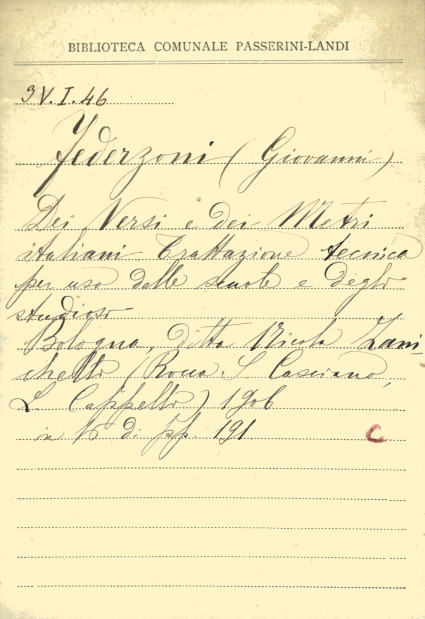 BIBLIOTECA COMUNALE PASSERINI-LANDI
3V.I.46
Federzoni (Giovanni)
Dei Versi e dei Metri
italiani Trattazione tecnica
per uso delle scuole e degli
studiosi
Bologna, ditta Nicola Zani-
chelli (Rocca S. Casciano,
L. Cappelli) 1906
in 16 di pp. 191
C